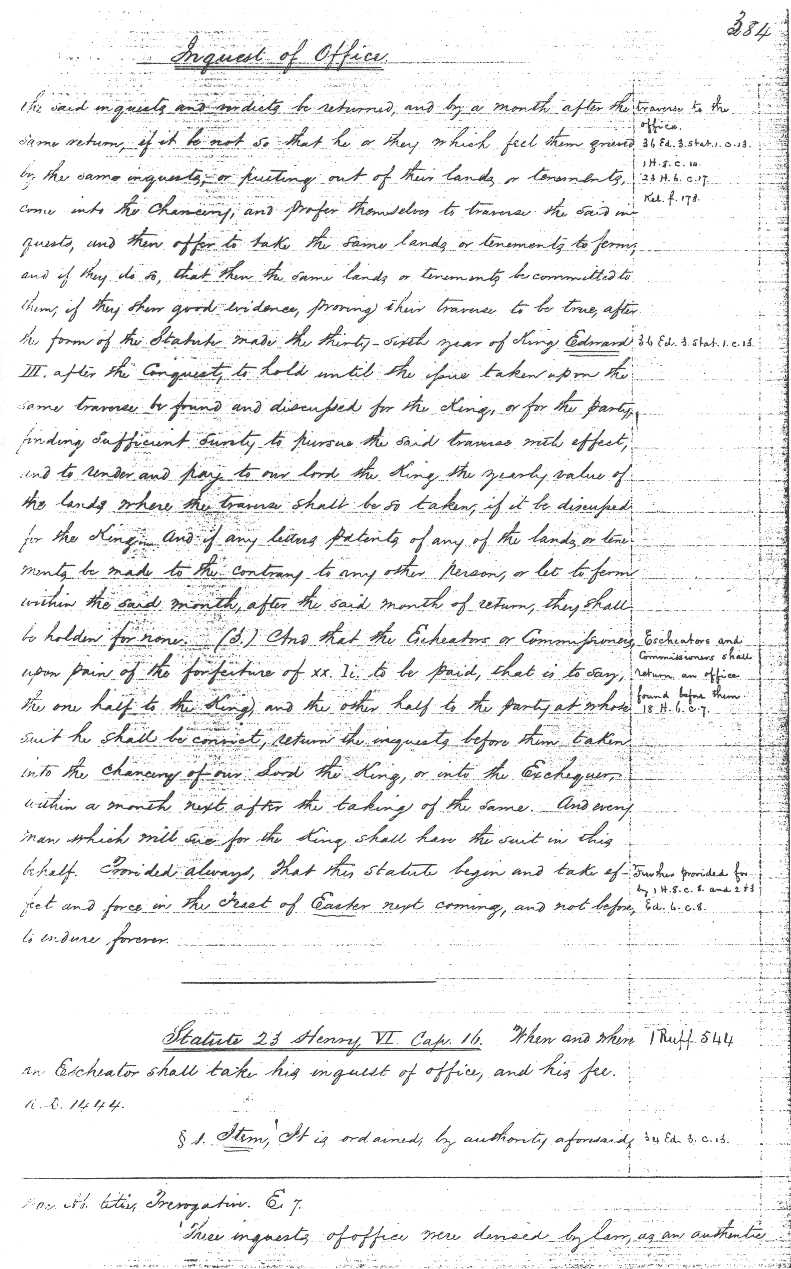 384
Inquest of Office
the said inquests and verdicts be returned, and by a month after the
same return, if it be not so that he or they which feel them grieved
by the same inquests, or putting out of their lands or tenements,
come into the Chancery, and profer themselves to traverse the said in
quests, and then offer to take the same lands or tenements to ferm,
and if they do so, that then the same lands or tenements be committed to
them, if they shew good evidence, proving their traverse to be true, after
the form of the Statute made the thirty-sixth year of King Edward
III. after the Conquest, to hold until the issue taken upon the
same traverse be found and discussed for the King, or for the party,
finding sufficient surety to pursue the said traverse with effect,
and to render and pay to our lord the King the yearly value of
the lands where the traverse shall be so taken, if it be discussed
for the King. And if any letters patents of any of the lands or tene-
ments be made to the contrary to any other person, or let to ferm
within the said month, after the said month of return, they shall
be holden for none. (3.) And that the Escheators or Commissioners,
upon pain of the forfeiture of xx. li. to be paid, that is to say,
the one half to the King, and the other half to the party at whose
suit he shall be convict, return the inquests before them taken
into the Chancery of our Lord the King, or into the Exchequer,
within a month next after the taking of the same. And every
man which will sue for the King shall have the suit in this
behalf. Provided always, That this statute begin and take ef-
fect and force in the Feast of Easter next coming, and not before,
to endure forever.
traverse to the
office.
36 Ed. 3. Stat. 1. c. 13.
1 H. 8. c. 10.
23 H. 6. c. 17.
Kel. f. 178.
36 Ed. 3. Stat. 1. c. 13.
Escheators and
Commissioners shall
return an office
found before them
18 H. 6. c. 7.
Further provided for
by 1 H. 8. c. 8. and 2 & 3
Ed. 6. c. 8.
Statute 23 Henry VI Cap. 16. When and where
an Escheator shall take his inquest of office, and his fee.
A.D. 1444.
1 Ruff. 544
§ 1. Item, It is ordained, by authority aforesaid,
34 Ed. 3. c. 13.
Bac. Ab. title, Prerogative. E. 7.
"These inquests of office were devised by law, as an authentic